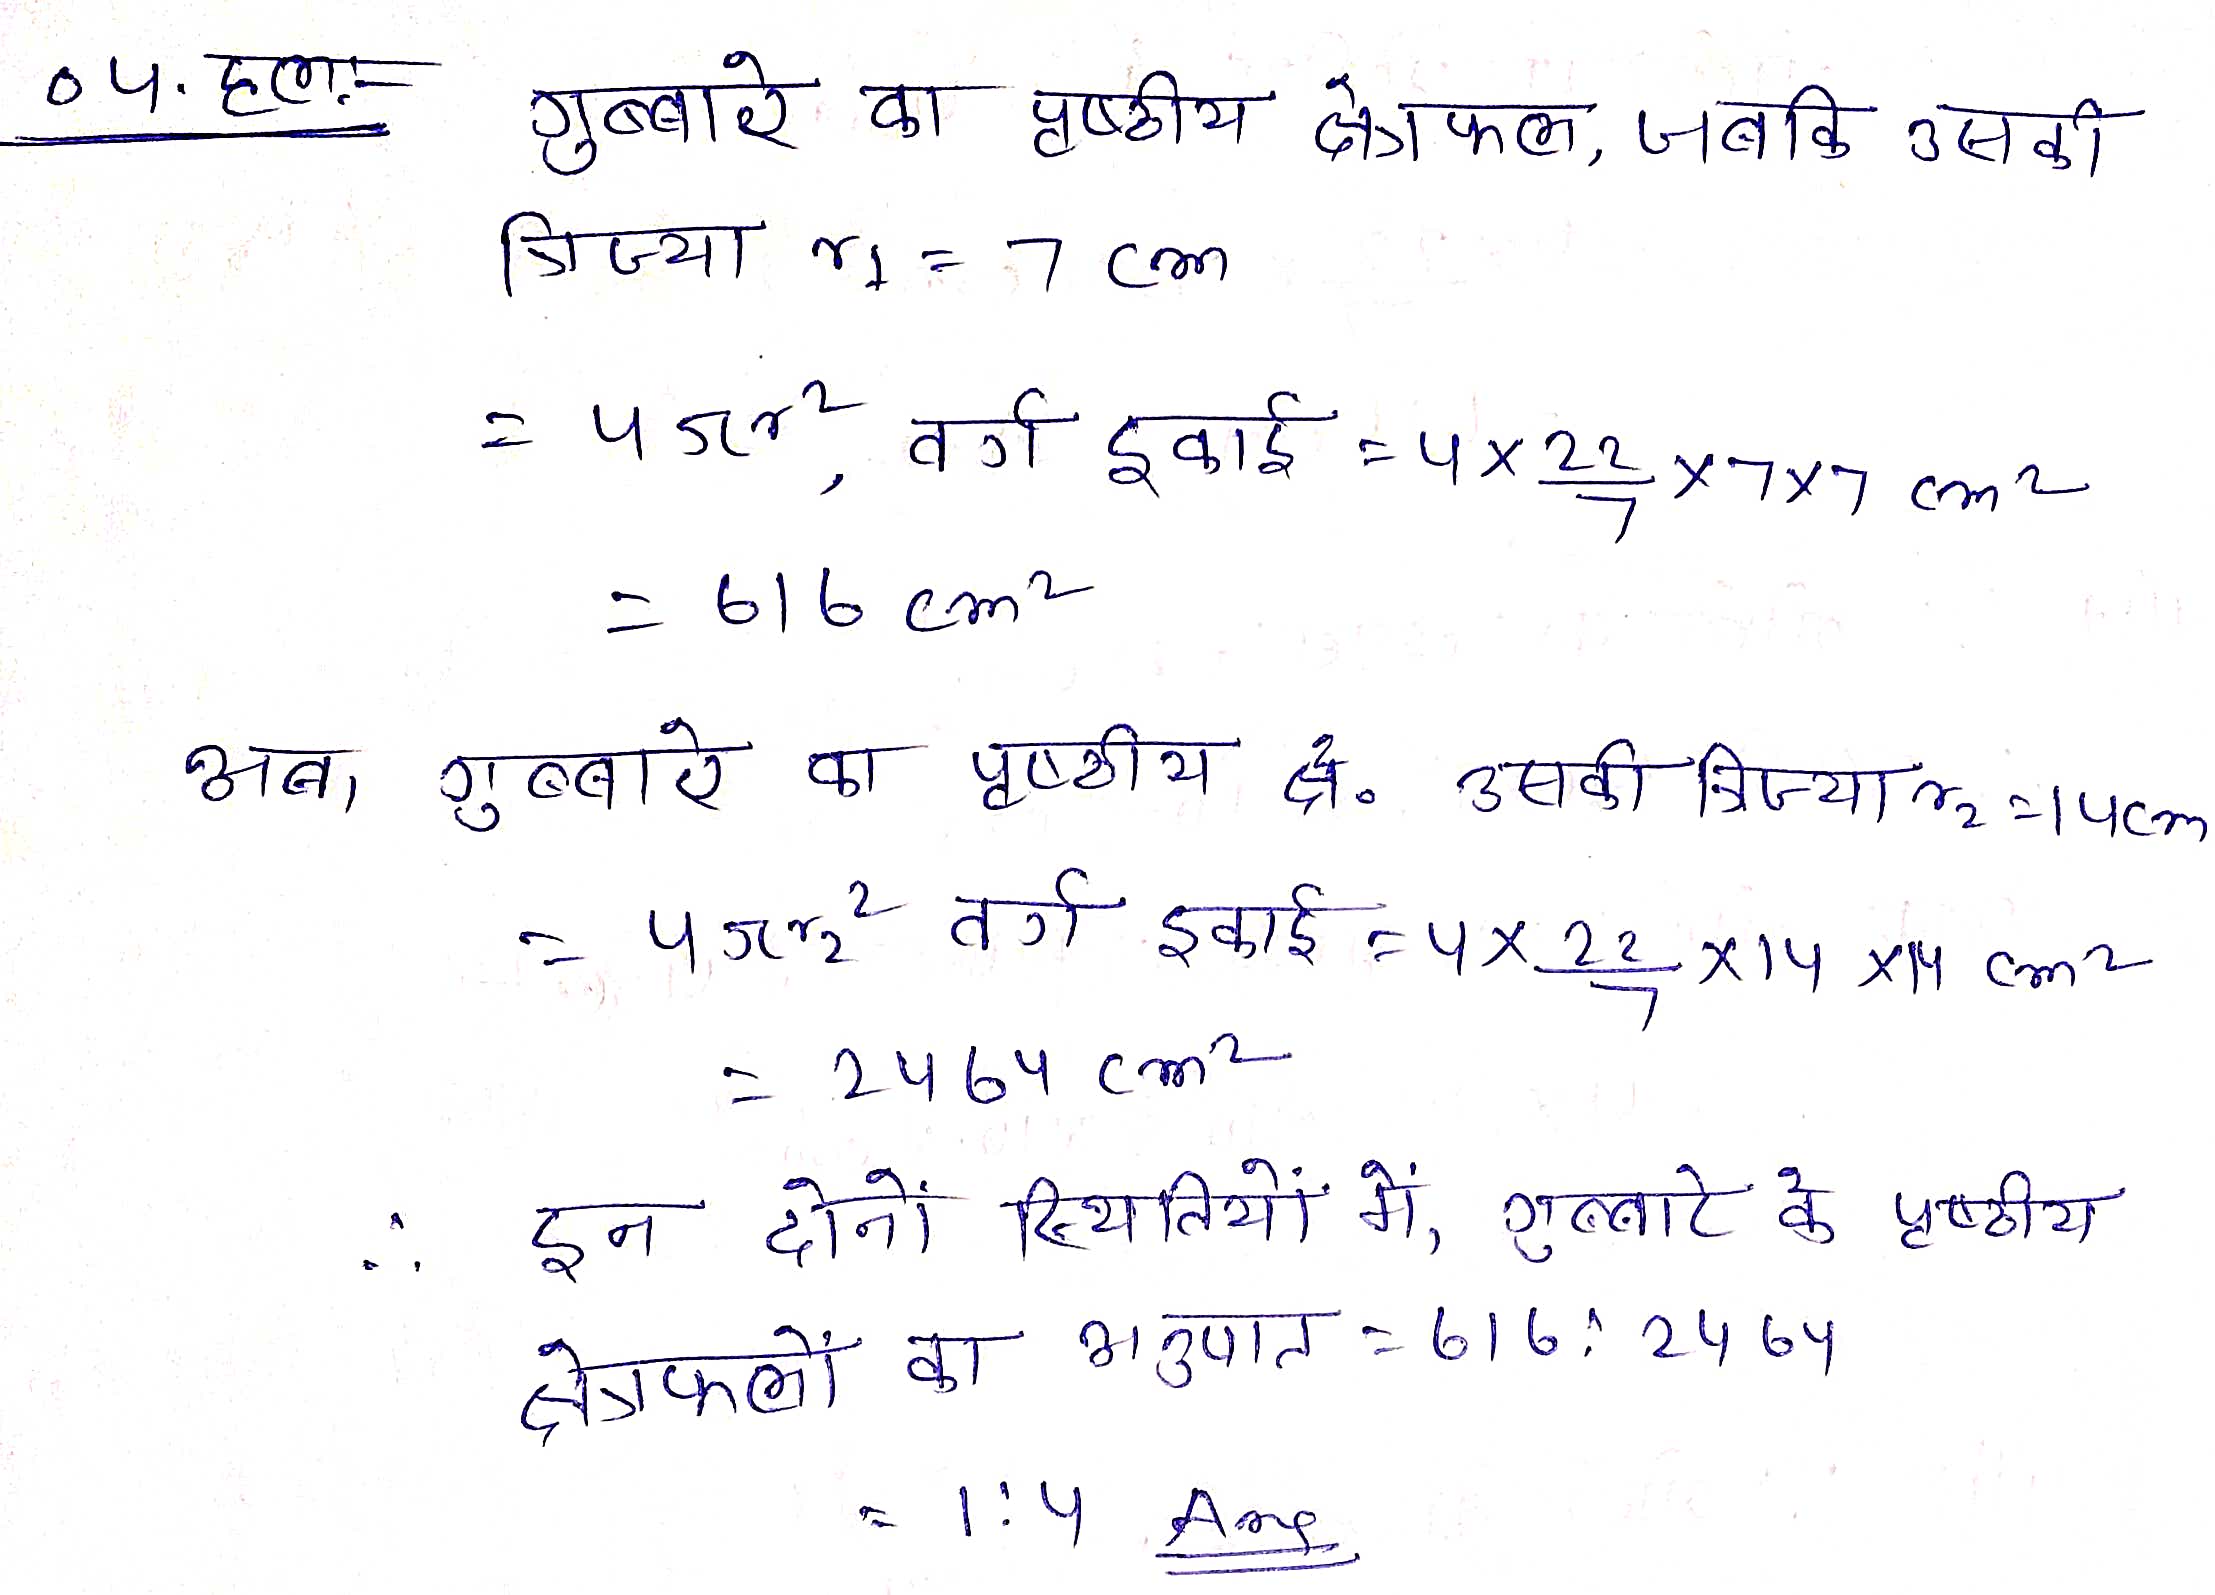 04. हल:-
गुब्बारे का पृष्ठीय क्षेत्रफल, जबकि उसकी
त्रिज्या r₁ = 7 cm
= 4πr², वर्ग इकाई = 4 × 22/7 × 7 × 7 cm²
= 616 cm²
अब, गुब्बारे का पृष्ठीय क्षे. उसकी त्रिज्या r₂ = 14cm
= 4πr₂² वर्ग इकाई = 4 × 22/7 × 14 × 14 cm²
= 2464 cm²
∴ इन दोनों स्थितियों में, गुब्बारे के पृष्ठीय
क्षेत्रफलों का अनुपात = 616 : 2464
= 1 : 4 Ans